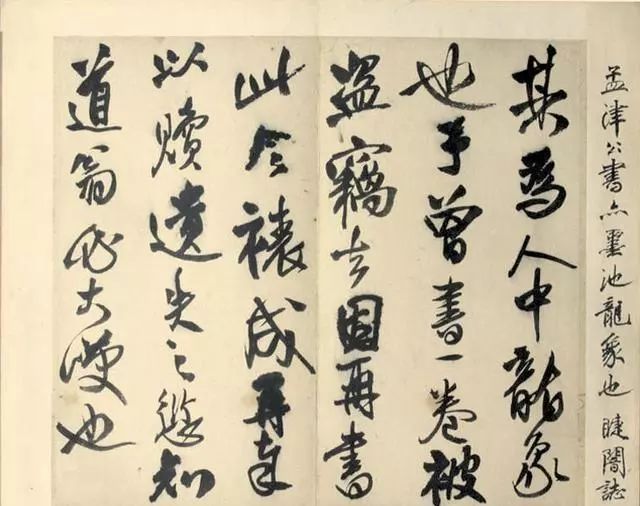 孟津公書亦墨池龍象也 睫闇誌
其爲人中龍象
也予曾書一卷被
盜竊去因再書
此今裱成再奉
以贖遺失之愆知
道翁必大噱也